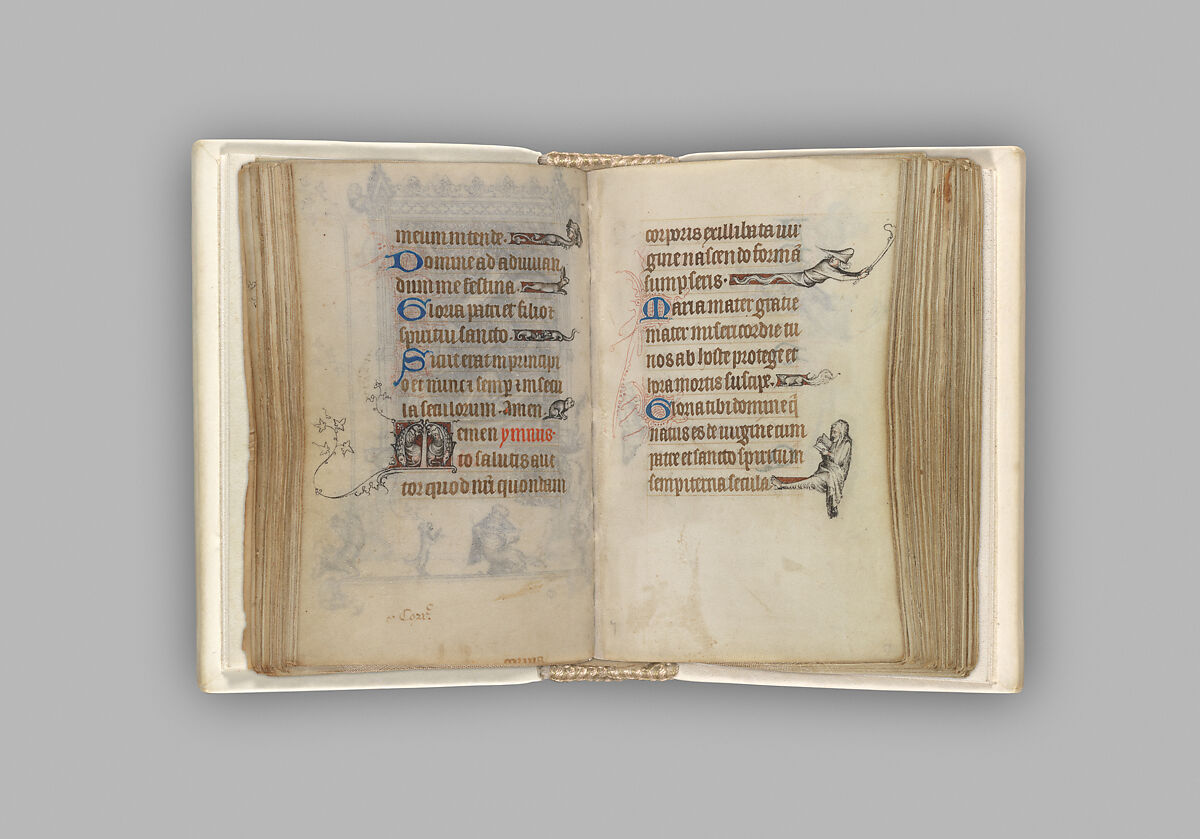 meum intende.
Domine ad adiuvan
dum me festina.
Gloria patri et filio et
spiritui sancto.
Sicut erat in principi
o et nunc ⁊ semp̱ ⁊ in secu
la seculorum. Amen
Memen ymnus.
to salutis auc
tor quod nr̃i quondam
Corr̃
corporis ex illibata uir
gine nascendo formã
sumpseris.
Maria mater gratie
mater misericordie tu
nos ab hoste protege et
hora mortis suscipe.
Gloria tibi domine q̃
natus es de uirgine cum
patre et sancto spiritum
sempiterna secula.